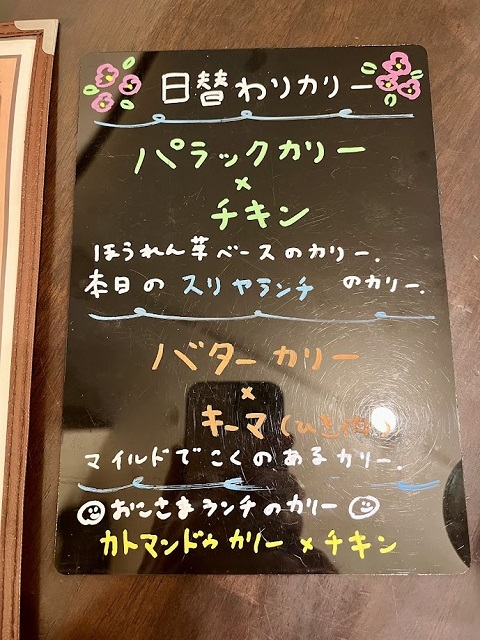 日替わりカリー
パラックカリー
×
チキン
ほうれん草ベースのカリー.
本日の スリヤランチ のカリー.
バターカリー
×
キーマ(ひき肉)
マイルドでこくのあるカリー.
おこさまランチのカリー
カトマンドゥカリー×チキン